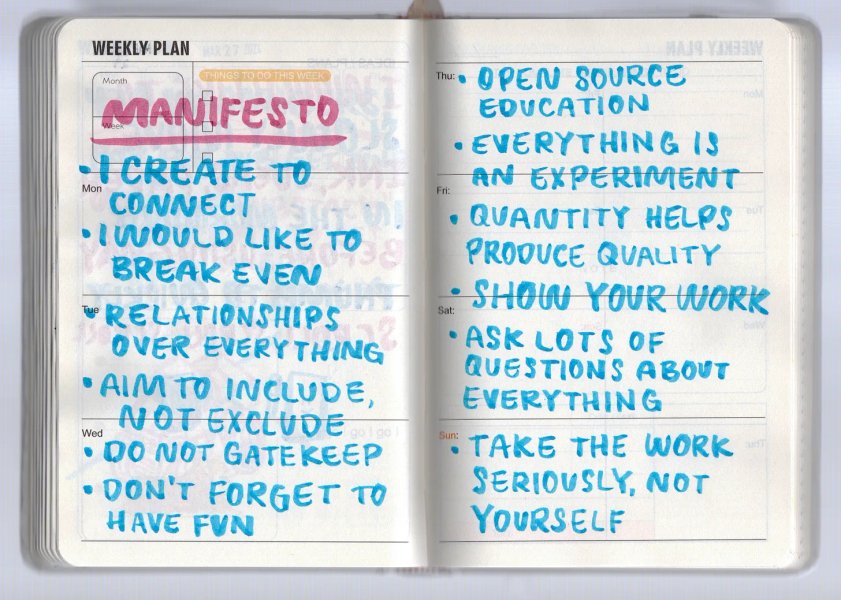 WEEKLY PLAN
Month
THINGS TO DO THIS WEEK
MANIFESTO
Week
• I CREATE TO
Mon
CONNECT
• I WOULD LIKE TO
BREAK EVEN
Tue
• RELATIONSHIPS
OVER EVERYTHING
• AIM TO INCLUDE,
NOT EXCLUDE
Wed
• DO NOT GATEKEEP
• DON'T FORGET TO
HAVE FUN
Thu:
• OPEN SOURCE
EDUCATION
• EVERYTHING IS
AN EXPERIMENT
Fri:
• QUANTITY HELPS
PRODUCE QUALITY
• SHOW YOUR WORK
Sat:
• ASK LOTS OF
QUESTIONS ABOUT
EVERYTHING
Sun:
• TAKE THE WORK
SERIOUSLY, NOT
YOURSELF